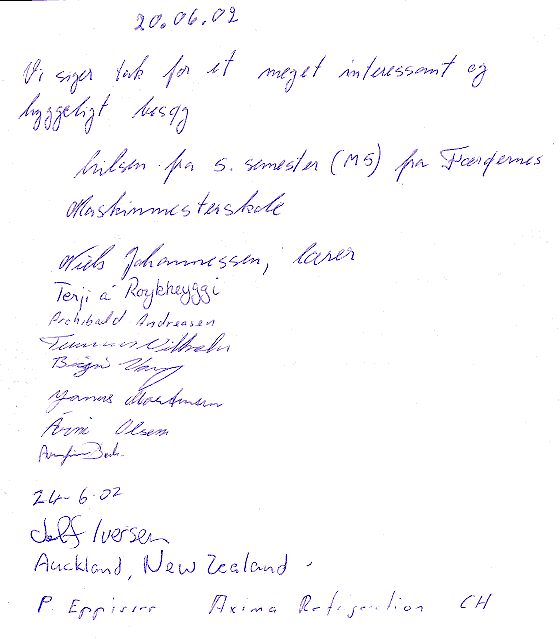 20.06.02
Vi siger tak for et meget interessant og
hyggeligt besøg
hilsen fra 5. semester (M5) fra Færøernes
Maskinmesterskole
Niels Johannessen, lærer
Terji á Roykheyggi
Archibald Andreasen
Vilhelm
Birgir
Jonas
Árni Olsen
24-6-02
Iversen
Auckland, New Zealand.
P. Axima Refrigeration CH